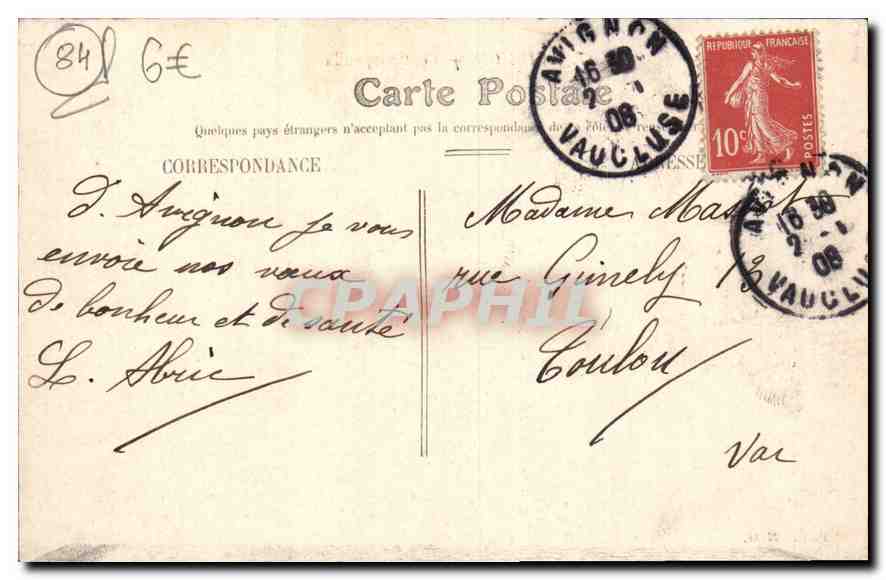 84
6€
Carte Postale
Quelques pays étrangers n'acceptant pas la correspondance de
CORRESPONDANCE
d'Avignon je vous
envoie nos vœux
de bonheur et de santé
L. Abric
Madame
rue Gimely 13
Toulon
Var
REPUBLIQUE FRANÇAISE
10c
POSTES
AVIGNON
16 30
2 - 1
08
VAUCLUSE
AVIGNON
16 30
2 - 1
08
VAUCLUSE
CPAPHIL